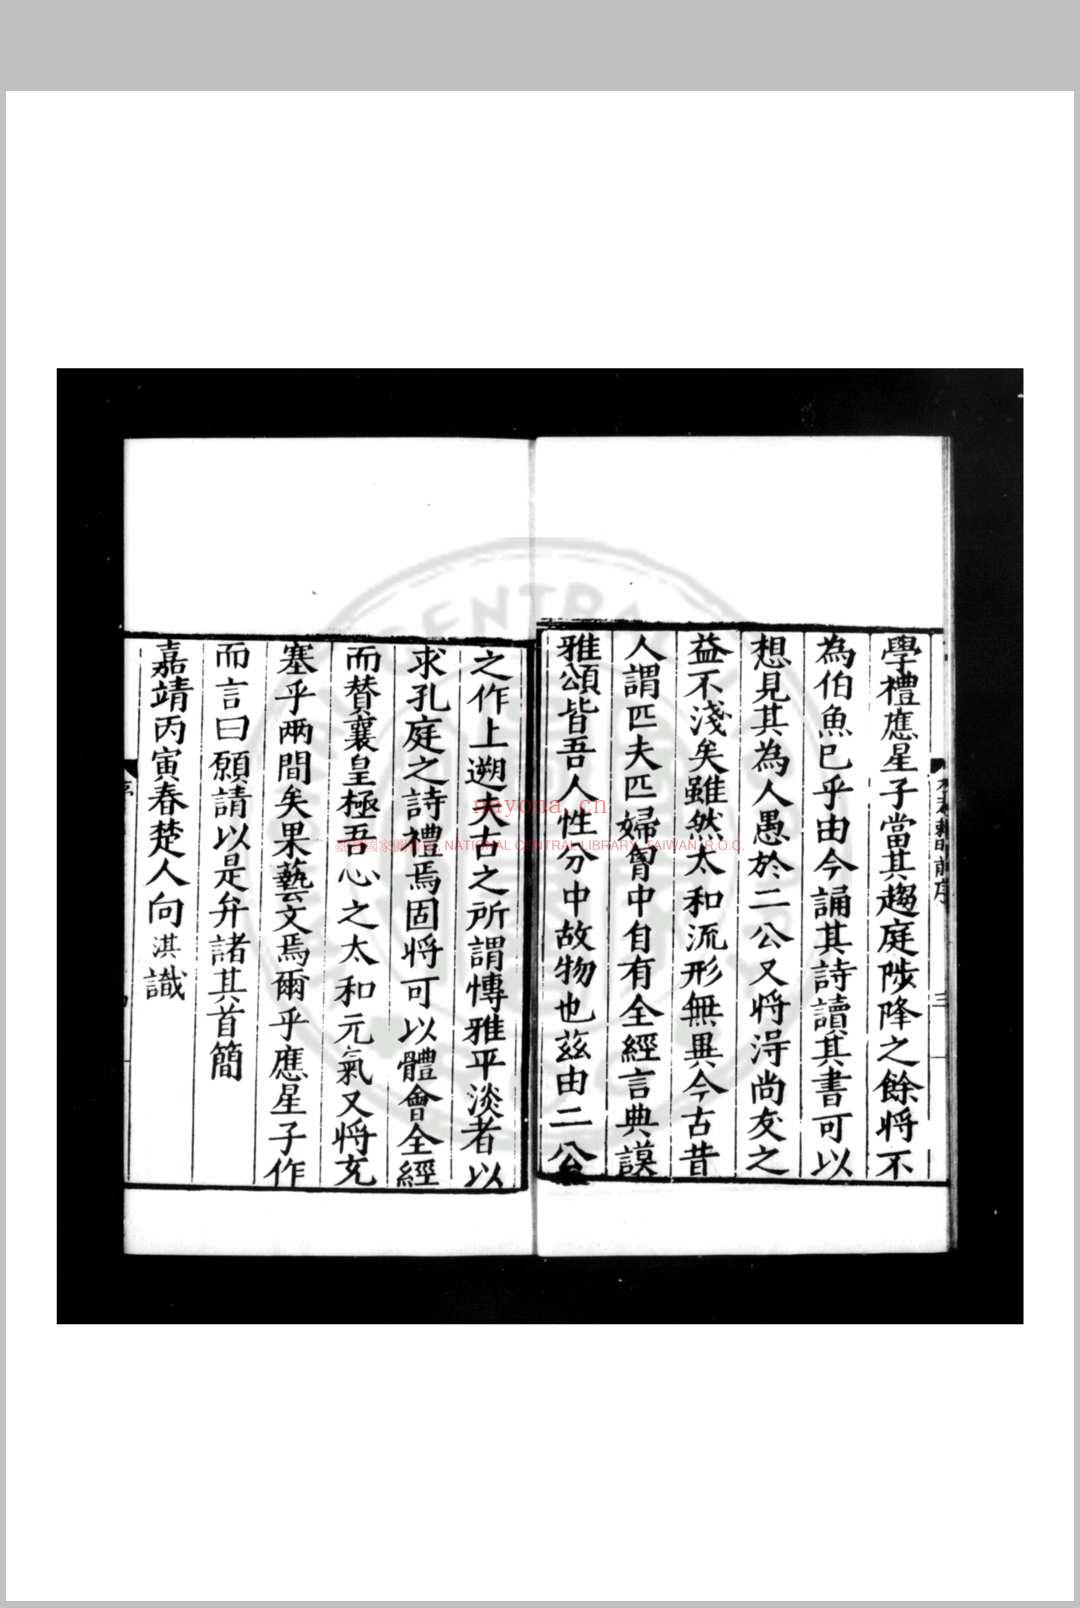 學禮應星子當其趨庭陟降之餘將不
為伯魚已乎由今誦其詩讀其書可以
想見其為人愚於二公又將淂尚友之
益不淺矣雖然太和流形無異今古昔
人謂匹夫匹婦胷中自有全經言典謨
雅頌皆吾人性分中故物也茲由二公
之作上遡夫古之所謂慱雅平淡者以
求孔庭之詩禮焉固將可以體會全經
而賛襄皇極吾心之太和元氣又將充
塞乎兩間矣果藝文焉爾乎應星子作
而言曰願請以是弁諸其首簡
嘉靖丙寅春楚人向淇識
前序
三
序
nayona.cn
臺灣國家圖書館, NATIONAL CENTRAL LIBRARY, TAIWAN, R.O.C.